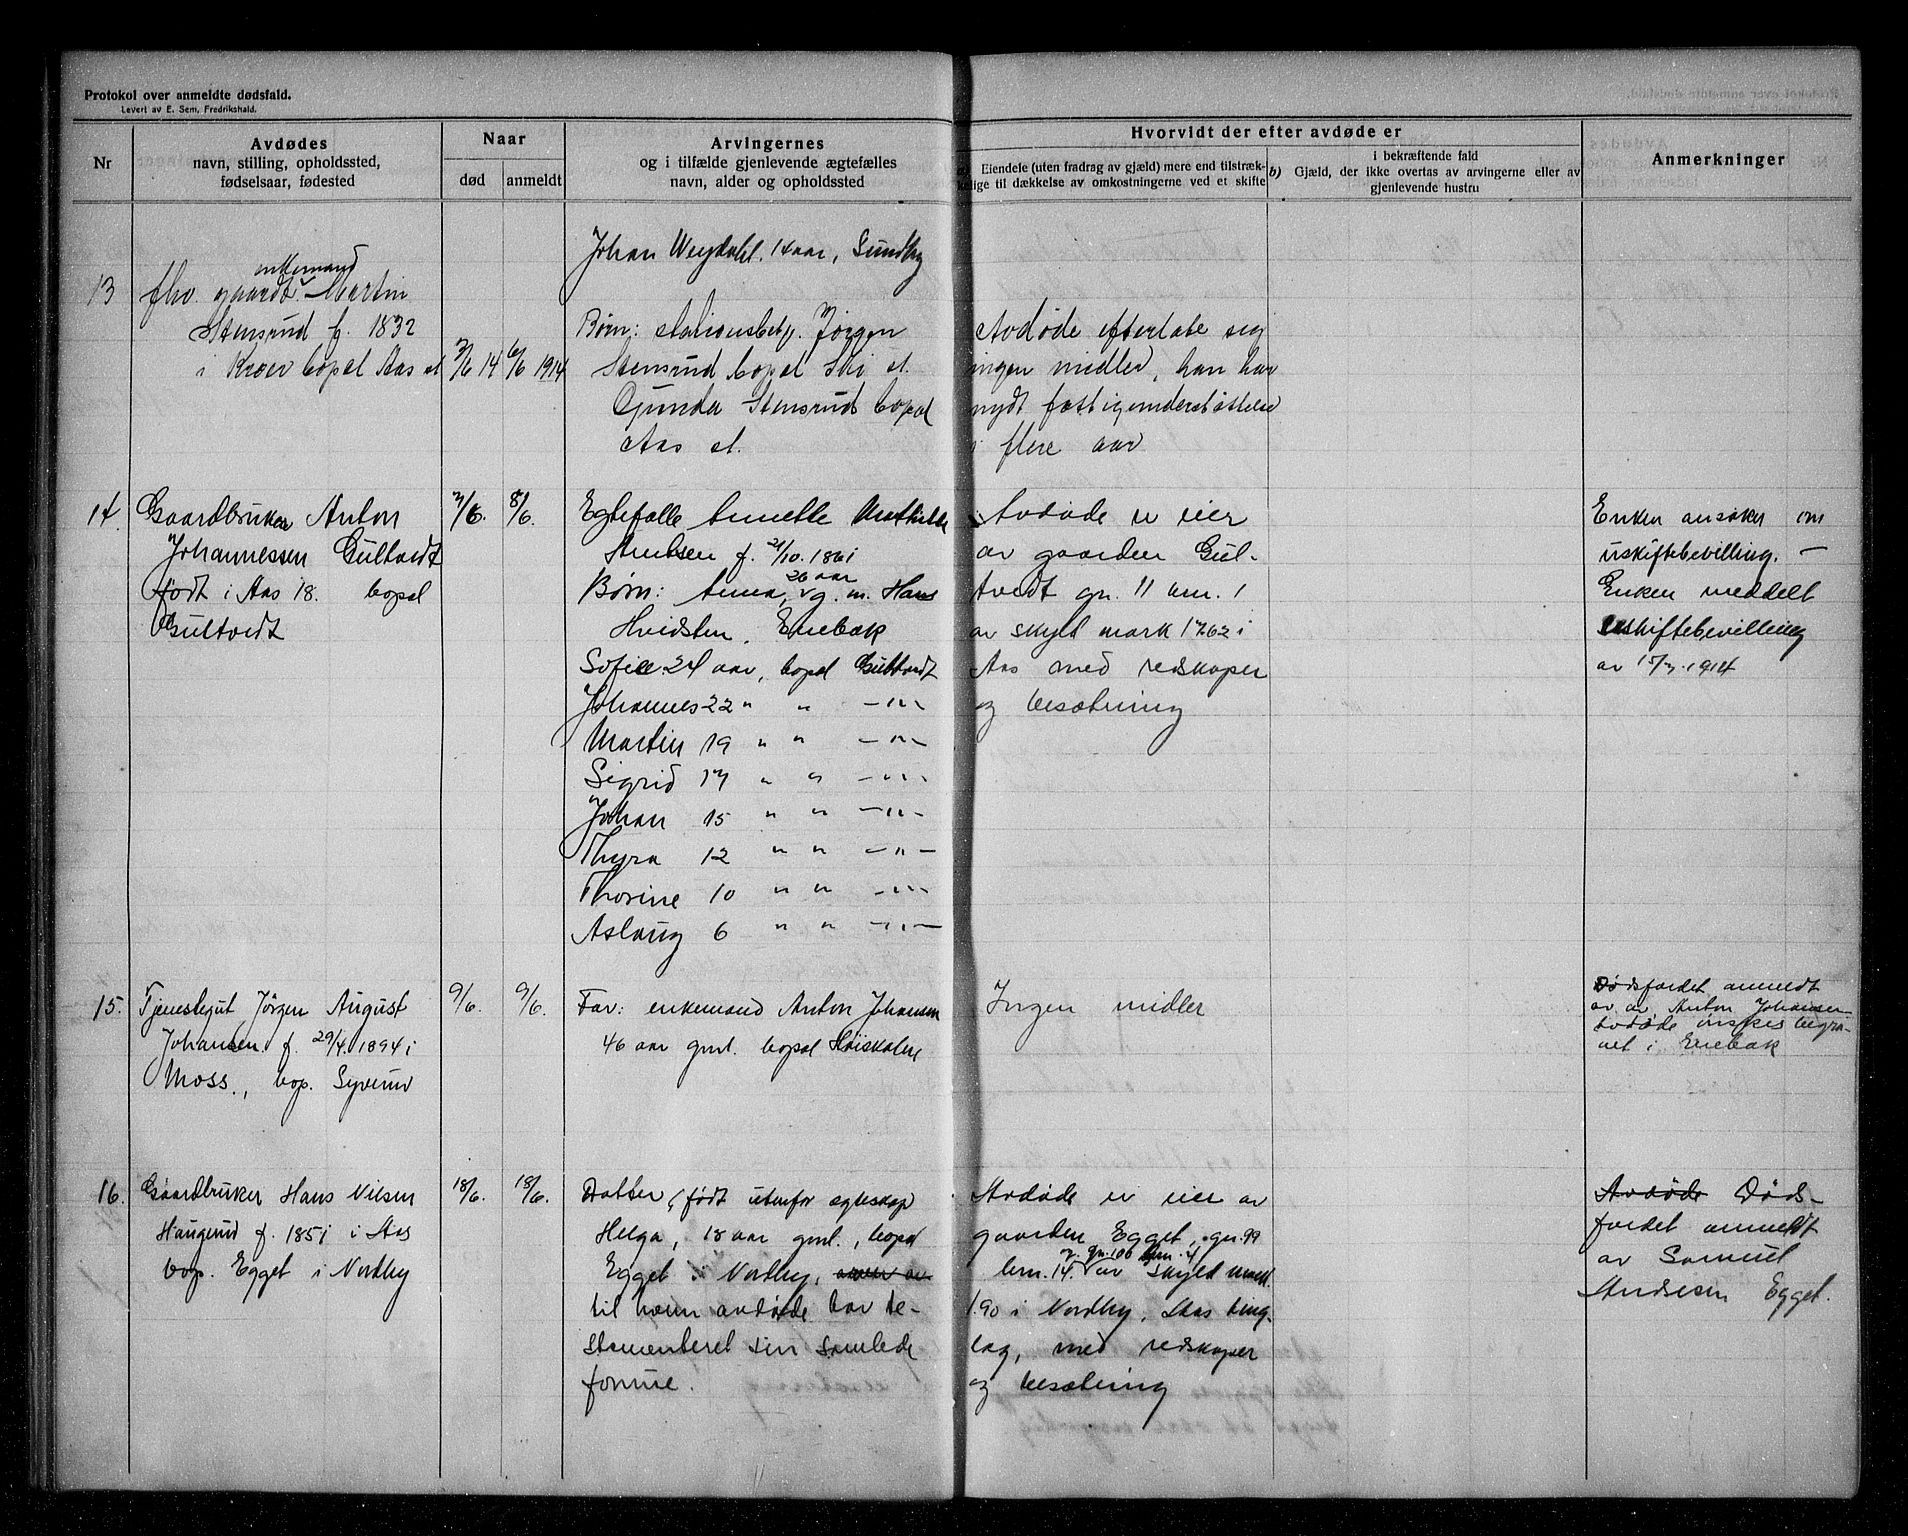 Protokol over anmeldte dødsfald.
Levert av E. Sem, Fredrikshald.
Nr
Avdødes
navn, stilling, opholdssted,
fødselsaar, fødested
Naar
død
anmeldt
Arvingernes
og i tilfælde gjenlevende ægtefælles
navn, alder og opholdssted
Hvorvidt der efter avdøde er
Eiendele (uten fradrag av gjæld) mere end tilstræk-
kelige til dækkelse av omkostningerne ved et skifte
i bekræftende fald
b) Gjæld, der ikke overtas av arvingerne eller av
gjenlevende hustru
Anmerkninger
Johan 14 aar, Sundby
13
enkemand
fhv. gaardbr. Martin
Stensrud f. 1832
i Kroer bopal Aas st
14 6/6 1914
Børn: stationsbetj. Jørgen
Stensrud bopal Ski st.
Gunda Stensrud bopal
Aas st.
Avdøde efterlate sig
ingen midler, han har
nydt fattigunderstøttelse
i flere aar
14.
Gaardbruker Anton
Johannessen Gultvedt
født i Aas 18. bopal
Gultvedt
7/6.
8/6.
Egtefælle Anette Mathilde
f. 21/10. 1861
26 aar
Børn: Anna, g. m. Hans
Hvidsten, Enebak
Sofie 24 aar, bopal Gultvedt
Johannes 22 " " -"-
Martin 19 " " -"-
Sigrid 17 " " -"-
Johan 15 " " -"-
Thyra 12 " " -"-
Thorine 10 " " -"-
Aslaug 6 " " -"-
Avdøde er eier
av gaarden Gul-
tvedt gn. 11 bn. 1
av skyld mark 17.62 i
Aas med redskaper
og besætning
Enken ansøker om
uskiftebevilling. —
Enken meddelt
uskiftebevilling
av 15/7. 1914
15.
Tjenestegut Jørgen August
Johansen f. 29/4. 1894 i
Moss., bop. Syverud
9/6.
9/6.
Far: enkemand Anton Johansen
46 aar gml. bopal
Ingen midler
Dødsfaldet anmeldt
av av Anton Johansen
Avdøde ønskes begra-
vet i Enebak
16.
Gaardbruker Hans Nilsen
Haugerud f. 1851 i Aas
bop. Egget i Nordby
18/6.
18/6.
Datter, født utenfor egteskap
Helga, 18 aar gml., bopal
Egget i Nordby,
til hvem avdøde har te-
stamenteret sin samlede
formue.
Avdøde er eier av
gaarden Egget, gn. 99
og gn. 106 bnr. 4
bn. 14. av skyld mark
1.90 i Nordby, Aas ting-
lag, med redskaper
og besætning
Avdøde Døds-
faldet anmeldt
av Samuel
Andersen Egget.